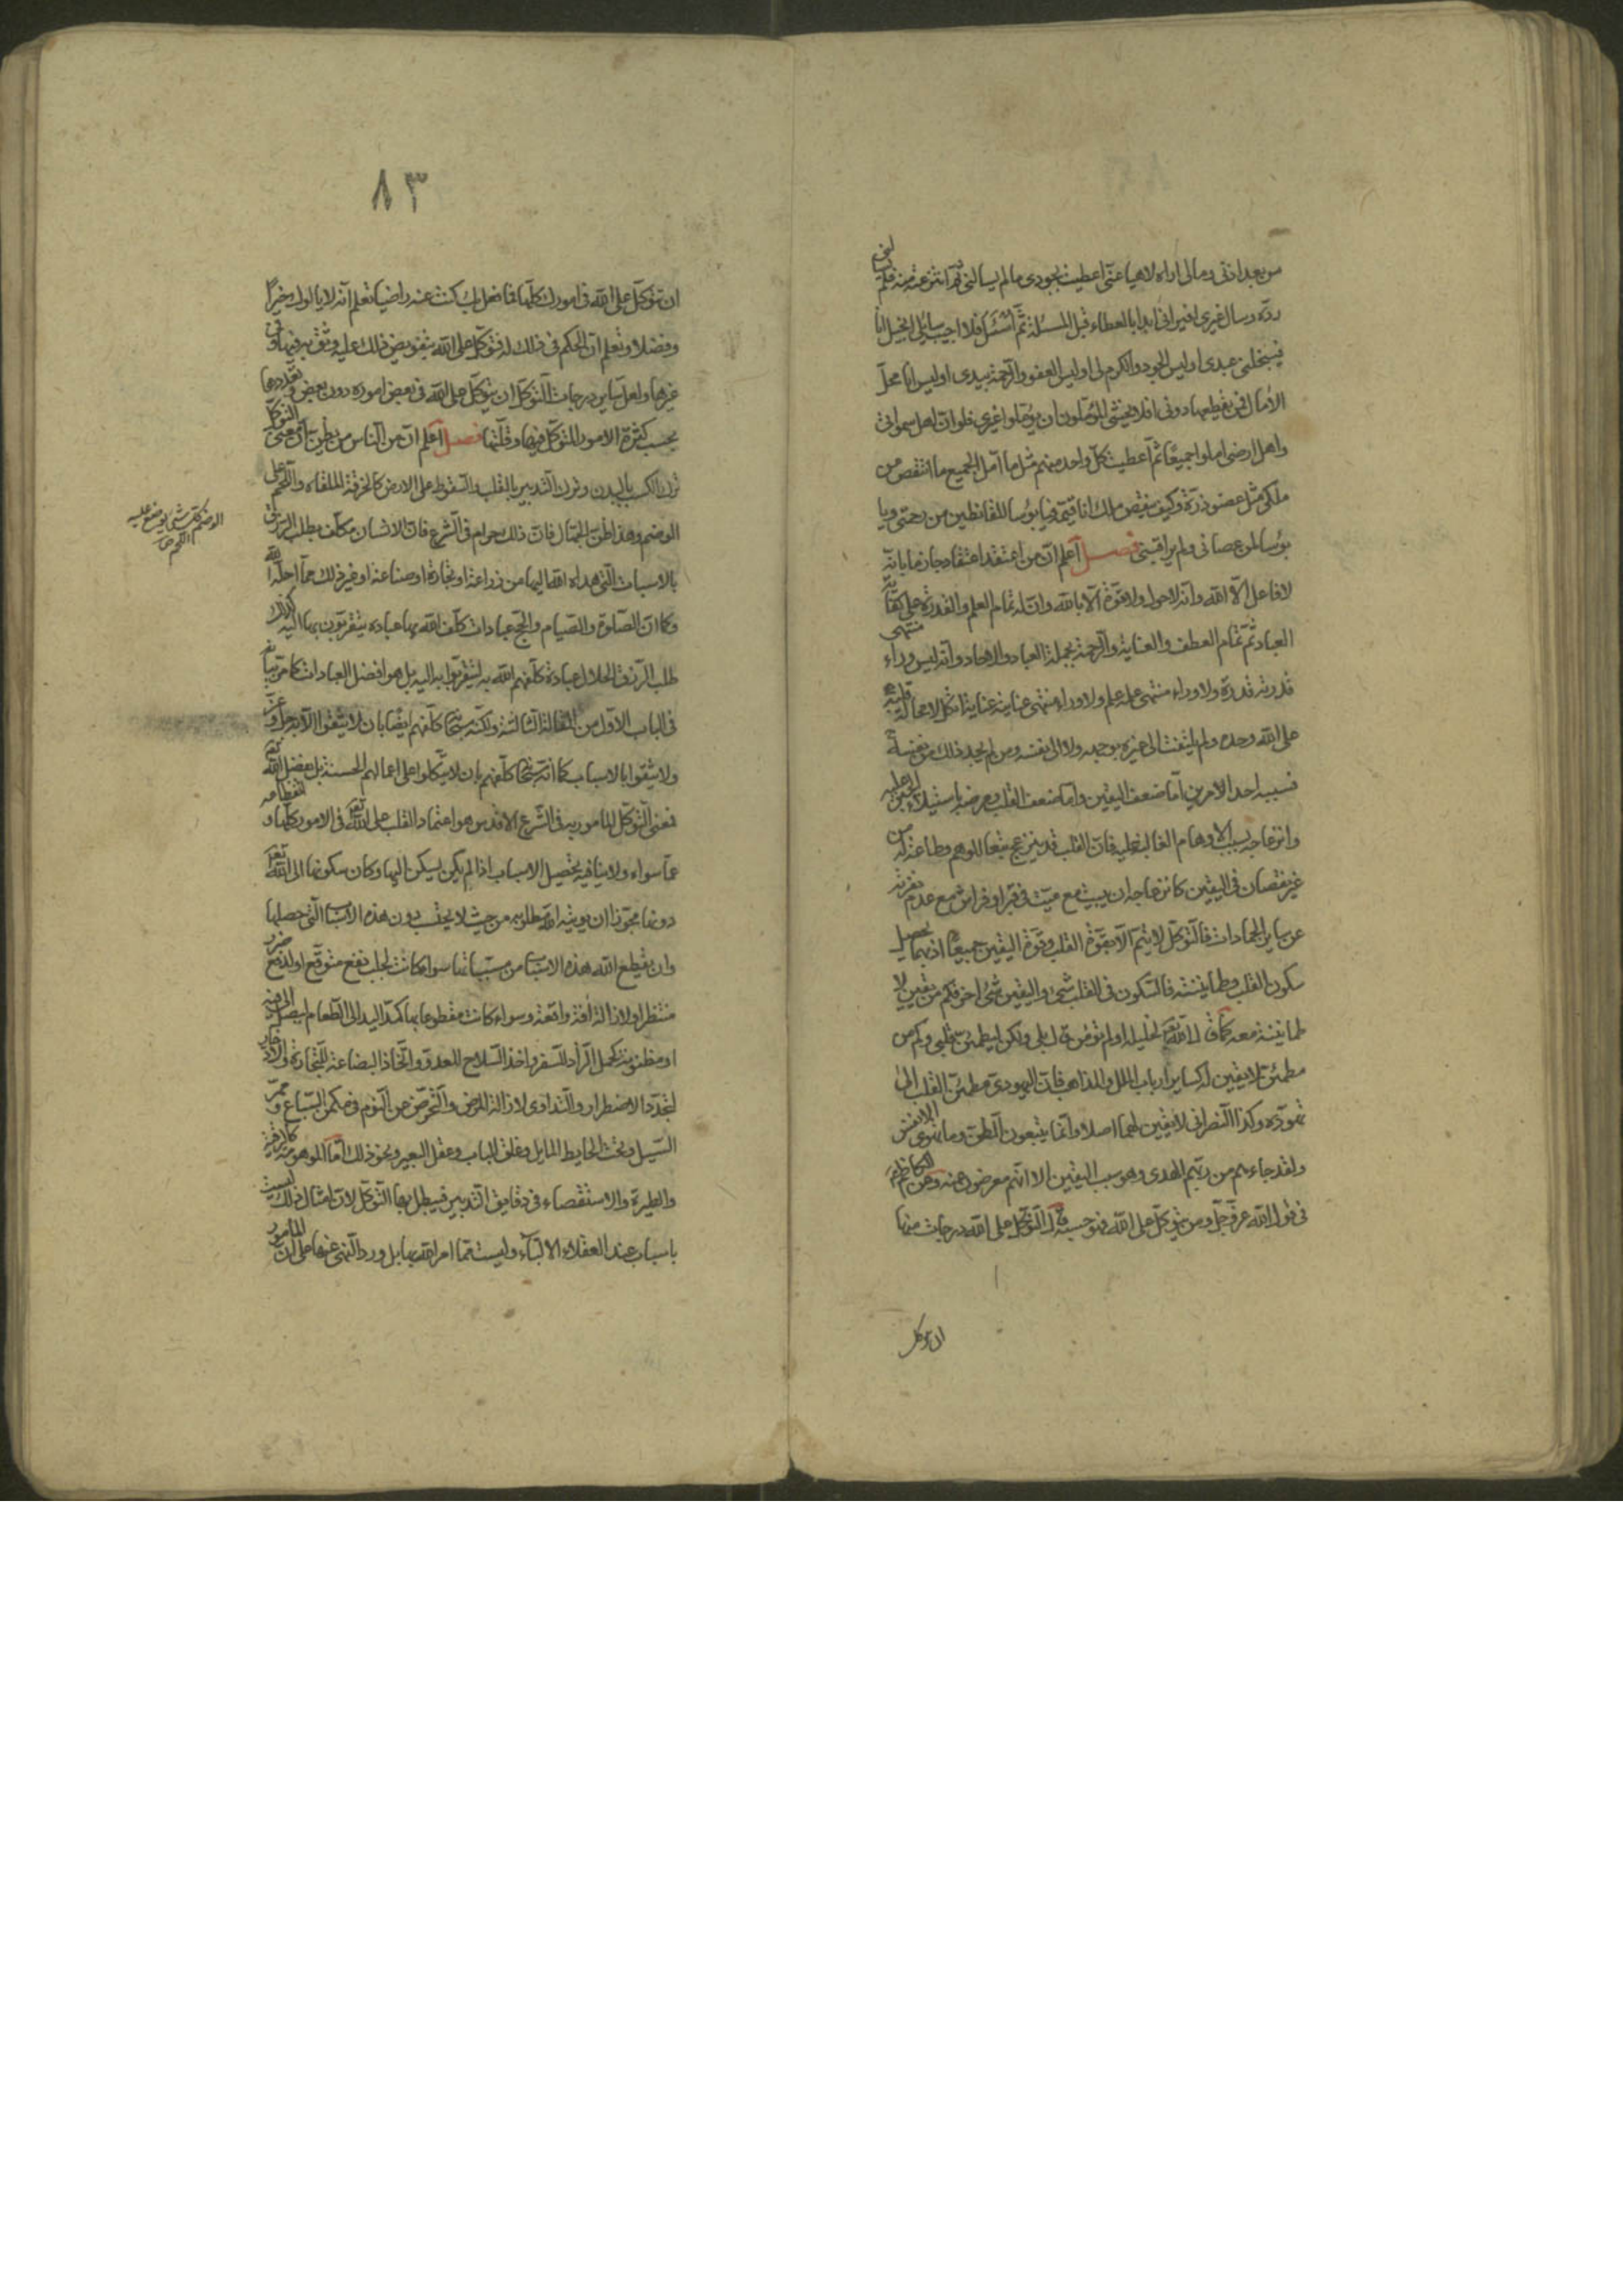 من بعد اذنی و مالی اراه لاهیا عنی اعطیته بجودی ما لم یسألنی ثم انتزعته منه فلم یسألنی
رده و سأل غیری افیرانی ابدأ بالعطاء قبل المسئلة ثم اُسْئَل فلا اجیب سایلی ابخیل انا
فیبخلنی عبدی اولیس الجود و الکرم لی اولیس العفو و الرحمة بیدی اولیس انا محل
الآمال فمن یقطعها دونی افلا یخشی المؤملون ان یؤملوا غیری فلو ان اهل سمواتی
و اهل ارضی املوا جمیعًا ثم اعطیت کل واحد منهم مثل ما امل الجمیع ما انتقص من
ملکی مثل عضو ذرة و کیف ینقص ملک انا قیّمه فیا بؤسا للقانطین من رحمتی و یا
بؤسا لمن عصانی و لم یراقبنی فصل اعلم ان من اعتقد اعتقادا جازما بانه
لا فاعل الّا الله و انه لا حول و لا قوة الّا بالله و ان له تمام العلم و القدرة علی کفایة
العباد ثمّ تمام العطف و العنایة و الرحمة بجملة العباد و الآحاد و انه لیس وراء منتهی
قدرته قدرة و لا وراء منتهی علمه علم و لا وراء منتهی عنایته عنایة اتکل لا محالة قلبه
علی الله وحده و لم یلتفت الی غیره بوجه و لا الی نفسه و من لم یجد ذلک من نفسه
فسببه احد الامرین امّا ضعف الیقین و امّا ضعف القلب و مرضه باستیلاء الجبن علیه
و انزعاجه بسبب الاوهام الغالبة علیه فان القلب قد ینزعج تبعا للوهم و طاعة له من
غیر نقصان فی الیقین کانزعاجه ان یبیت مع میّت فی قبر او فراش مع عدم نفرته
عن سایر الجمادات فالتوکل لا یتم الّا بقوة القلب و قوة الیقین جمیعًا اذ بهما یحصل
سکون القلب و طمانینته فالسکون فی القلب شئ و الیقین شئ اخر فکم من یقین لا
طمانینة معه کما قال الله تعالی لخلیله اولم تؤمن قال بلی و لکن لیطمئن قلبی و کم من
مطمئن لا یقین له کسایر ارباب الملل و المذاهب فان الیهودی مطمئن القلب الی
تهوّده و کذا النصرانی لا یقین لهما اصلا و انما یتبعون الظن و ما تهوی الانفس
و لقد جاءهم من ربهم الهدی و هو سبب الیقین الا انهم معرضون عنه و عن الکاظم
فی قول الله عز و جل و من یتوکل علی الله فهو حسبه قال التوکل علی الله درجات منها
ان تتوکل
۸۳
ان تتوکل علی الله فی امورک کلها فما فعل بک کنت عنه راضیا تعلم انه لا یالوک خیرًا
و فضلا و تعلم ان الحکم فی ذلک له فتوکل علی الله بتفویض ذلک علیه و ثق به فیها و فی
غیرها و لعل سایر درجات التوکل ان یتوکل علی الله فی بعض اموره دون بعض و تعددها
بحسب کثرة الامور المتوکل فیها و قلتها فصل اعلم ان من الناس من یظن ان معنی التوکل
ترک الکسب بالبدن و ترک التدبیر بالقلب و السقوط علی الارض کالخرقة الملقاه و اللحم علی
الوضم و هذا ظن الجهّال فان ذلک حرام فی الشرع فان الانسان مکلف بطلب الرزق
بالاسباب التی هداه الله الیها من زراعة او تجارة او صناعة او غیر ذلک مما احله الله
و کما ان الصلوة و الصیام و الحج عبادات کلف الله بها عباده یتقربون بها الیه کذلک
طلب الرزق الحلال عبادة کلفهم الله به لیتقربوا به الیه بل هو افضل العبادات کما مر بیانه
فی الباب الاول من المقالة الثالثة و لکنه سبحانه کلفهم ایضا بان لا یثقوا الّا به عز و جل
و لا یثقوا بالاسباب کما انه سبحانه کلفهم بان لا یتکلوا علی اعمالهم الحسنة بل بفضل الله تعالی
فمعنی التوکل المامور به فی الشرع الاقدس هو اعتماد القلب علی الله تعالی فی الامور کلها و انقطاعه
عما سواه و لا ینافیه تحصیل الاسباب اذا لم یکن یسکن الیها و کان سکونه الی الله تعالی
دونها مجوّزا ان یوتیه الله مطلوبه من حیث لا یحتسب دون هذه الاسباب التی حصلها
و ان یقطع الله هذه الاسباب من مسبباتها سواء کانت لجلب نفع متوقع او لدفع ضرر
منتظر او لازالة آفة واقعة و سواء کانت مقطوعا بها کمدّ الید الی الطعام لیصل الی فیه
او مظنونة کحمل الزاد للسفر و اخذ السلاح للعدو و اتخاذ البضاعة للتجارة و الادخار
لتجدد الاضطرار و التداوی لازالة المرض و التحرز عن النوم فی مکمن السباع و ممر
السیل و تحت الحایط المایل و غلق الباب و عقل البعیر و نحو ذلک امّا الموهومة کالرقیة
و الطیرة و الاستقصاء فی دقایق التدبیر فیبطل بها التوکل لان امثال ذلک لیست
باسباب عند العقلاء الالبّاء و لیست مما امر الله بها بل ورد النهی عنها علی ان المامور
الوضم کل شئ یوضع علیه
اللحم ص